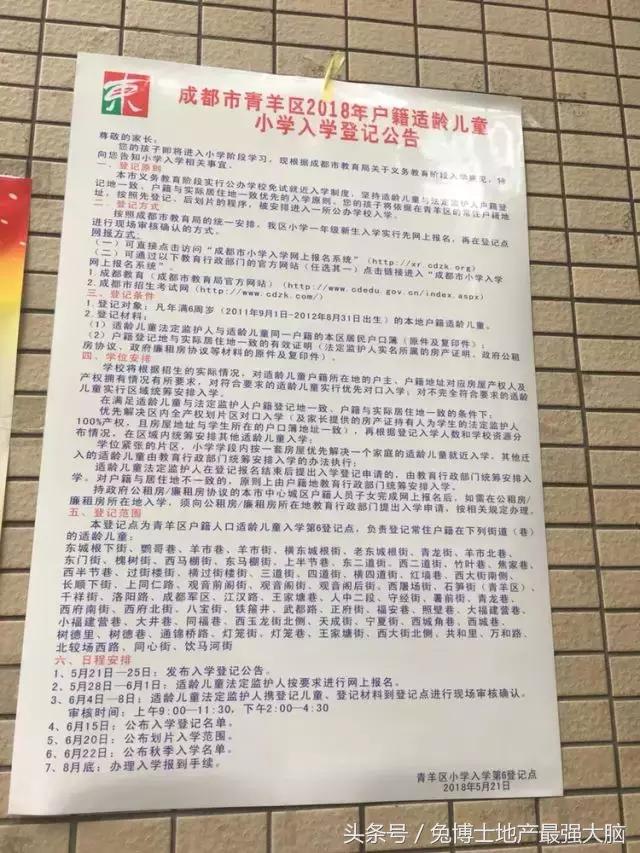 東
成都市青羊区2018年户籍适龄儿童
小学入学登记公告
尊敬的家长：
您的孩子即将进入小学阶段学习，现根据成都市教育局关于义务教育阶段入学意见，特
向您告知小学入学相关事宜。
一、登记原则
本市义务教育阶段实行公办学校免试就近入学制度，坚持适龄儿童与法定监护人户籍登
记地一致、户籍与实际居住地一致优先的入学原则。您的孩子将依据在青羊区的常住户籍地
址，按照先登记、后划片的程序，被安排进入一所公办学校入学。
二、登记方式
按照成都市教育局的统一安排，我区小学一年级新生入学实行先网上报名，再在登记点
进行现场审核确认的方式。
网报方式：
（一）可直接点击访问“成都市小学入学网上报名系统”（http://xr.cdzk.org）
（二）可通过以下教育行政部门的官方网站（任选其一）点击链接进入“成都市小学入学
网上报名系统”。
1.成都教育（成都市教育局官方网站）（http://www.cdedu.gov.cn/index.aspx）
2.成都市招生考试网（http://www.cdzk.com/）
三、登记条件
1.登记对象：凡年满6周岁（2011年9月1日-2012年8月31日出生）的本地户籍适龄儿童。
2.登记材料：
（1）适龄儿童法定监护人与适龄儿童同一户籍的本区居民户口簿（原件及复印件）；
（2）户籍登记地与实际居住地一致的有效证明（法定监护人实名所属的房产证明、政府公租
房协议、政府廉租房协议等材料的原件及复印件）。
四、学位安排
学校将根据招生的实际情况，对适龄儿童户籍所在地的户主、户籍地址对应房屋产权人及
产权拥有情况有所要求，对符合要求的适龄儿童实行优先对口入学；对不完全符合要求的适龄
儿童实行区域统筹安排入学。
在满足适龄儿童与法定监护人户籍登记地一致、户籍与实际居住地一致的条件下：
优先解决区内全产权划片区对口入学（及家长提供的房产证持有人为学生的法定监护人
100%产权，且房屋地址与学生所在的户口簿地址一致），再根据登记入学人数和学校资源分
布情况，在区域内统筹安排其他适龄儿童入学；
学位紧张的片区，小学学段内按一套房屋优先解决一个家庭的适龄儿童就近入学，其他迁
入的适龄儿童由教育行政部门统筹安排入学的办法执行；
适龄儿童法定监护人在登记报名结束后提出入学登记申请的，由教育行政部门统筹安排入
学。对户籍与居住地不一致的，原则上由户籍地教育行政部门统筹安排入学。
持政府公租房/廉租房协议的本市中心城区户籍人员子女完成网上报名后，如需在公租房/
廉租房所在地入学，须向公租房/廉租房所在地教育行政部门提出入学申请，按相关规定办理。
五、登记范围
本登记点为青羊区户籍人口适龄儿童入学第6登记点，负责登记常住户籍在下列街道（巷）
的适龄儿童：
东城根下街、鹦哥巷、羊市巷、羊市街、横东城根街、老东城根街、青龙街、羊市北巷、
东门街、槐树街、西马棚街、东马棚街、上半节巷、东二道街、西二道街、竹叶巷、焦家巷、
西半节巷、过街楼街、横过街楼街、三道街、四道街、横四道街、红墙巷、西大街南侧、
长顺下街、上同仁路、观音前阁街、观音阁街、观音阁后街、西屠场街、石笋街（青羊区）、
千祥街、洛阳路、成都军区、江汉路、王家塘巷、人中二段、守经街、署前街、青龙巷、
西府南街、西府北街、八宝街、铁箍井、武都路、正府街、福安巷、照壁巷、大福建营巷、
小福建营巷、大井巷、同福巷、西玉龙街北侧、天成街、宁夏街、西城角巷、西城巷、
树德里、树德巷、通锦桥路、灯笼街、灯笼巷、王家塘街、西大街北侧、共和里、万和路、
北较场西路、同心街、饮马河街
六、日程安排
1、5月21日—25日：发布入学登记公告。
2、5月28日—6月1日：适龄儿童法定监护人按要求进行网上报名。
3、6月4日—8日：适龄儿童法定监护人携登记儿童、登记材料到登记点进行现场审核确认。
审核时间：上午9:00—11:30，下午2:00—4:30
4、6月15日：公布入学登记名单。
5、6月20日：公布划片入学范围。
6、6月22日：公布秋季入学名单。
7、8月底：办理入学报到手续。
青羊区小学入学第6登记点
2018年5月21日
头条号／兔博士地产最强大脑